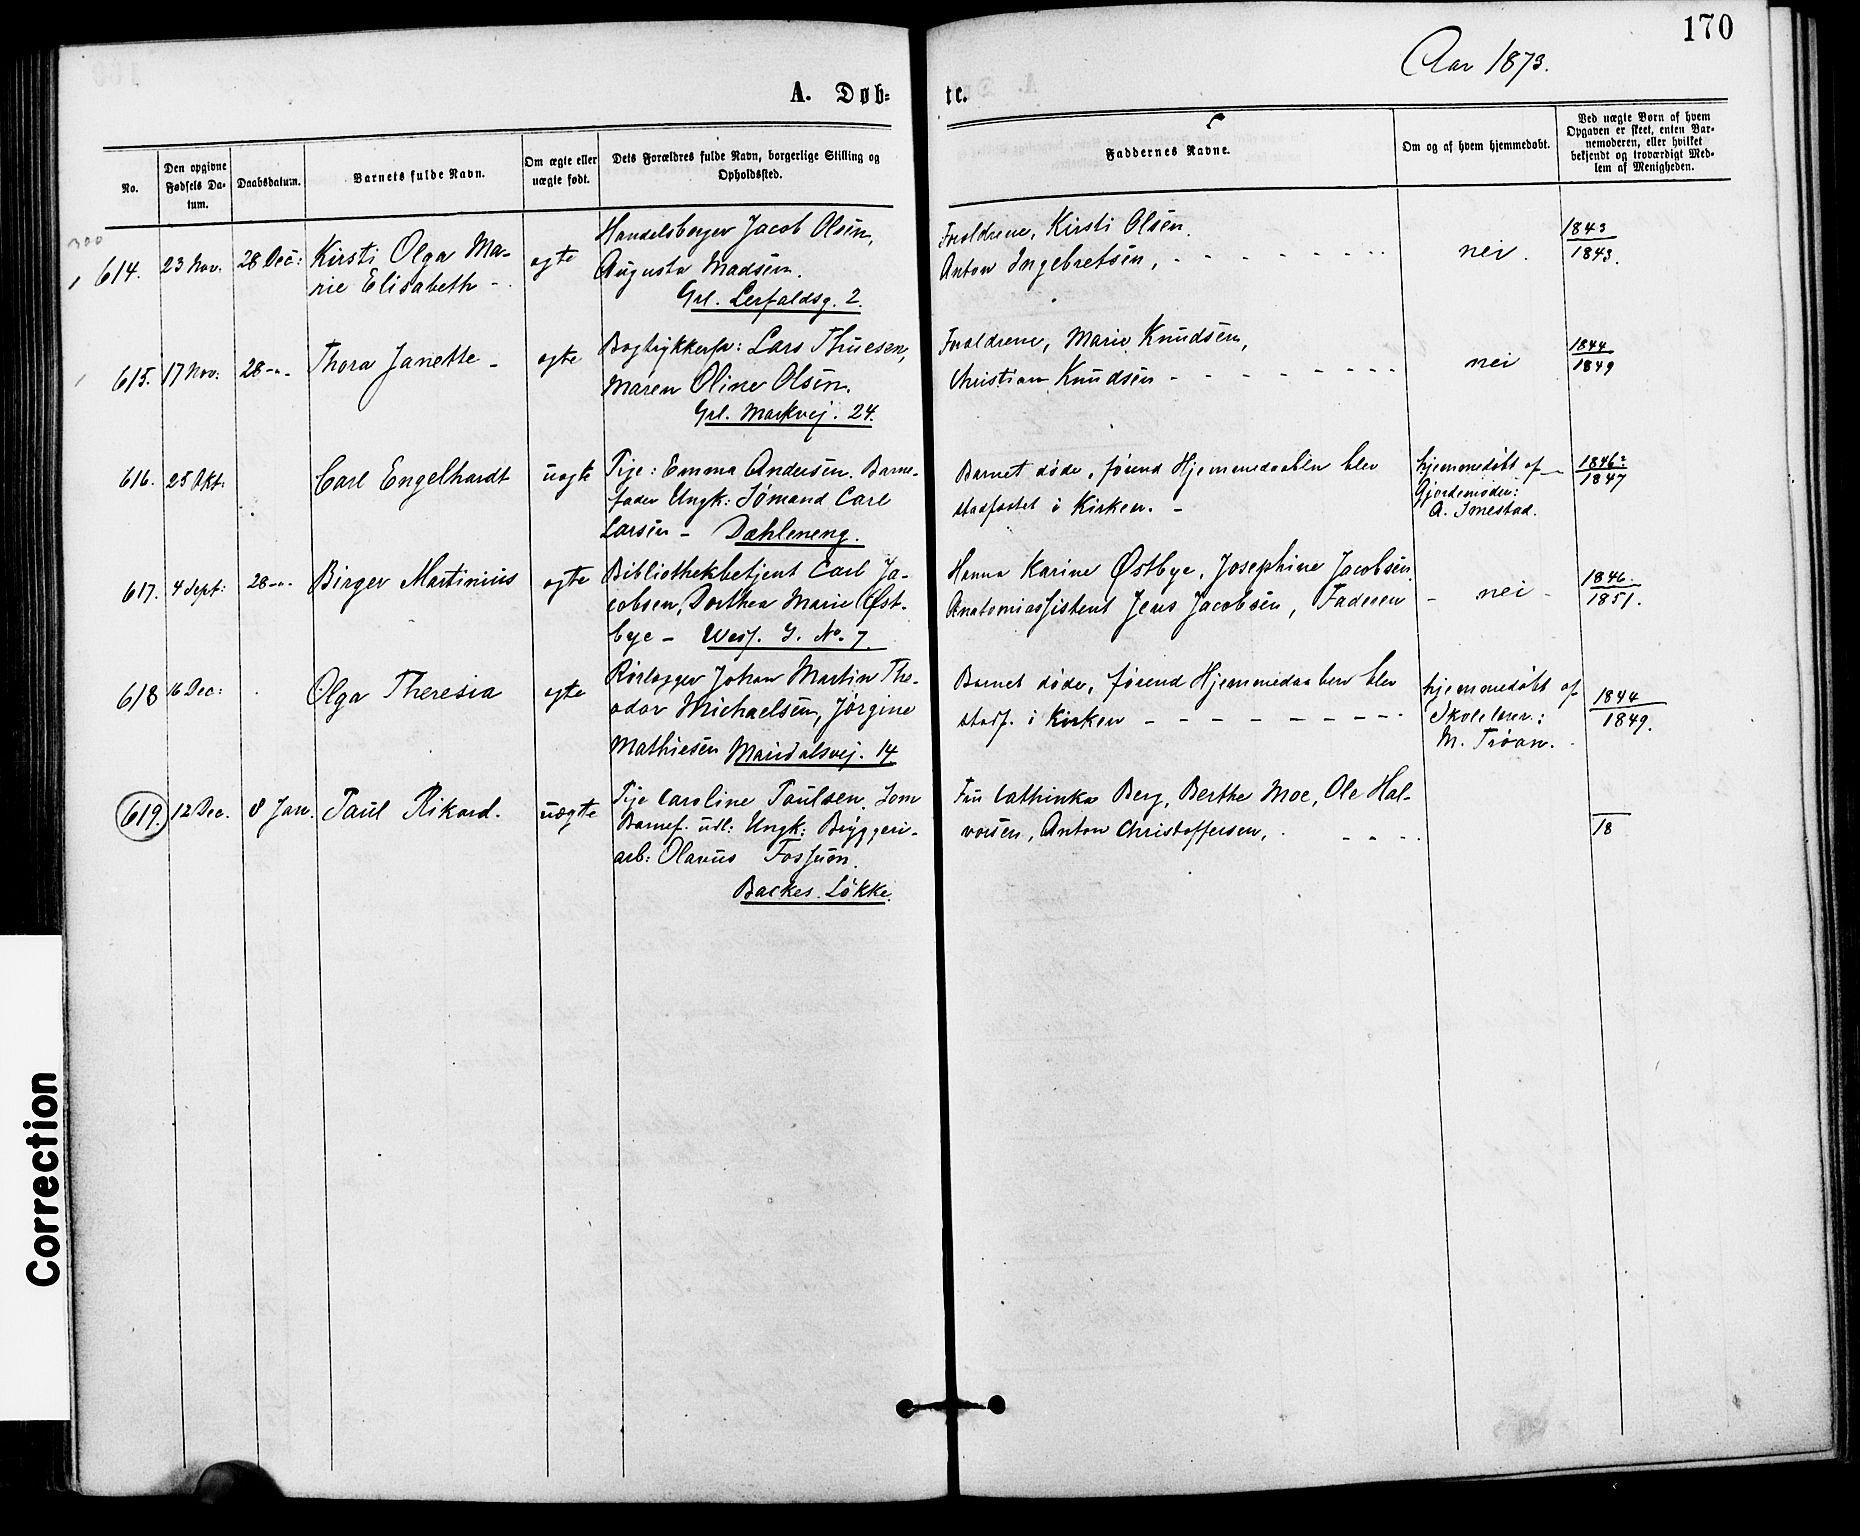 170
Aar 1873.
A. Døb= te.
No.
Den opgivne Fødsels Da- tum.
Daabsdatum.
Barnets fulde Navn.
Om ægte eller uægte født.
Dets Forældres fulde Navn, borgerlige Stilling og Opholdssted.
Faddernes Navne.
Om og af hvem hjemmedøbt.
Ved uægte Børn af hvem Opgaven er skeet, enten Bar- nemoderen, eller hvilket bekjendt og troværdigt Med- lem af Menigheden.
614. 23 Nov. 28 Dec: Kirsti Olga Ma- ægte Handelsborger Jacob Olsen, Forældrene, Kirsti Olsen. nei. 1843
rie Elisabeth - Augusta Madsen. Anton Ingebretsen, - - - - - - - - 1843.
Grl. Lerfaldsg. 2.
615. 17 Nov: 28 -"- Thora Janette - ægte Bogtrykkersv: Lars Thuesen, Forældrene, Marie Knudsen, nei 1844
Maren Oline Olsen. Christian Knudsen - - - - - - - - 1849
Grl. Markvej. 24.
616. 25 Okt: Carl Engelhardt uægte Pige: Emma Andersen. Barne- Barnet døde, førend Hjemmedaaben blev hjemmedøbt af 1846
fader Ungk: Sømand Carl stadfæstet i Kirken. - Gjordemoder: 1847
Larsen - Dæhleneng. A. Imestad.
617. 4 Sept: 28 -"- Birger Martinius ægte Bibliothekbetjent Carl Ja- Hanna Karine Østbye, Josephine Jacobsen - nei - 1846.
cobsen, Dorthea Marie Øst- Anatomiassistent Jens Jacobsen, Faderen 1851.
bye - Wesf. G. No. 7.
618 16 Dec: Olga Theresia ægte Rørlægger Johan Martin The- Barnet døde, førend Hjemmedaaben blev hjemmedøbt af 1844
odor Michaelsen, Jørgine stadf. i Kirken - - - - - - - - Skolelærer: 1849.
Mathiesen Maridalsvej. 14 M. Trøan.
619. 12 Dec. 8 Jan. Paul Rikard. uægte Pige Caroline Paulsen. Som Fru Cathinka Berg, Berthe Moe, Ole Hal- 18
Barnef. udl: Ungk: Bryggeri- vorsen, Anton Christoffersen, - - - -
arb: Olavus Fossum.
Backes. Løkke.
Correction